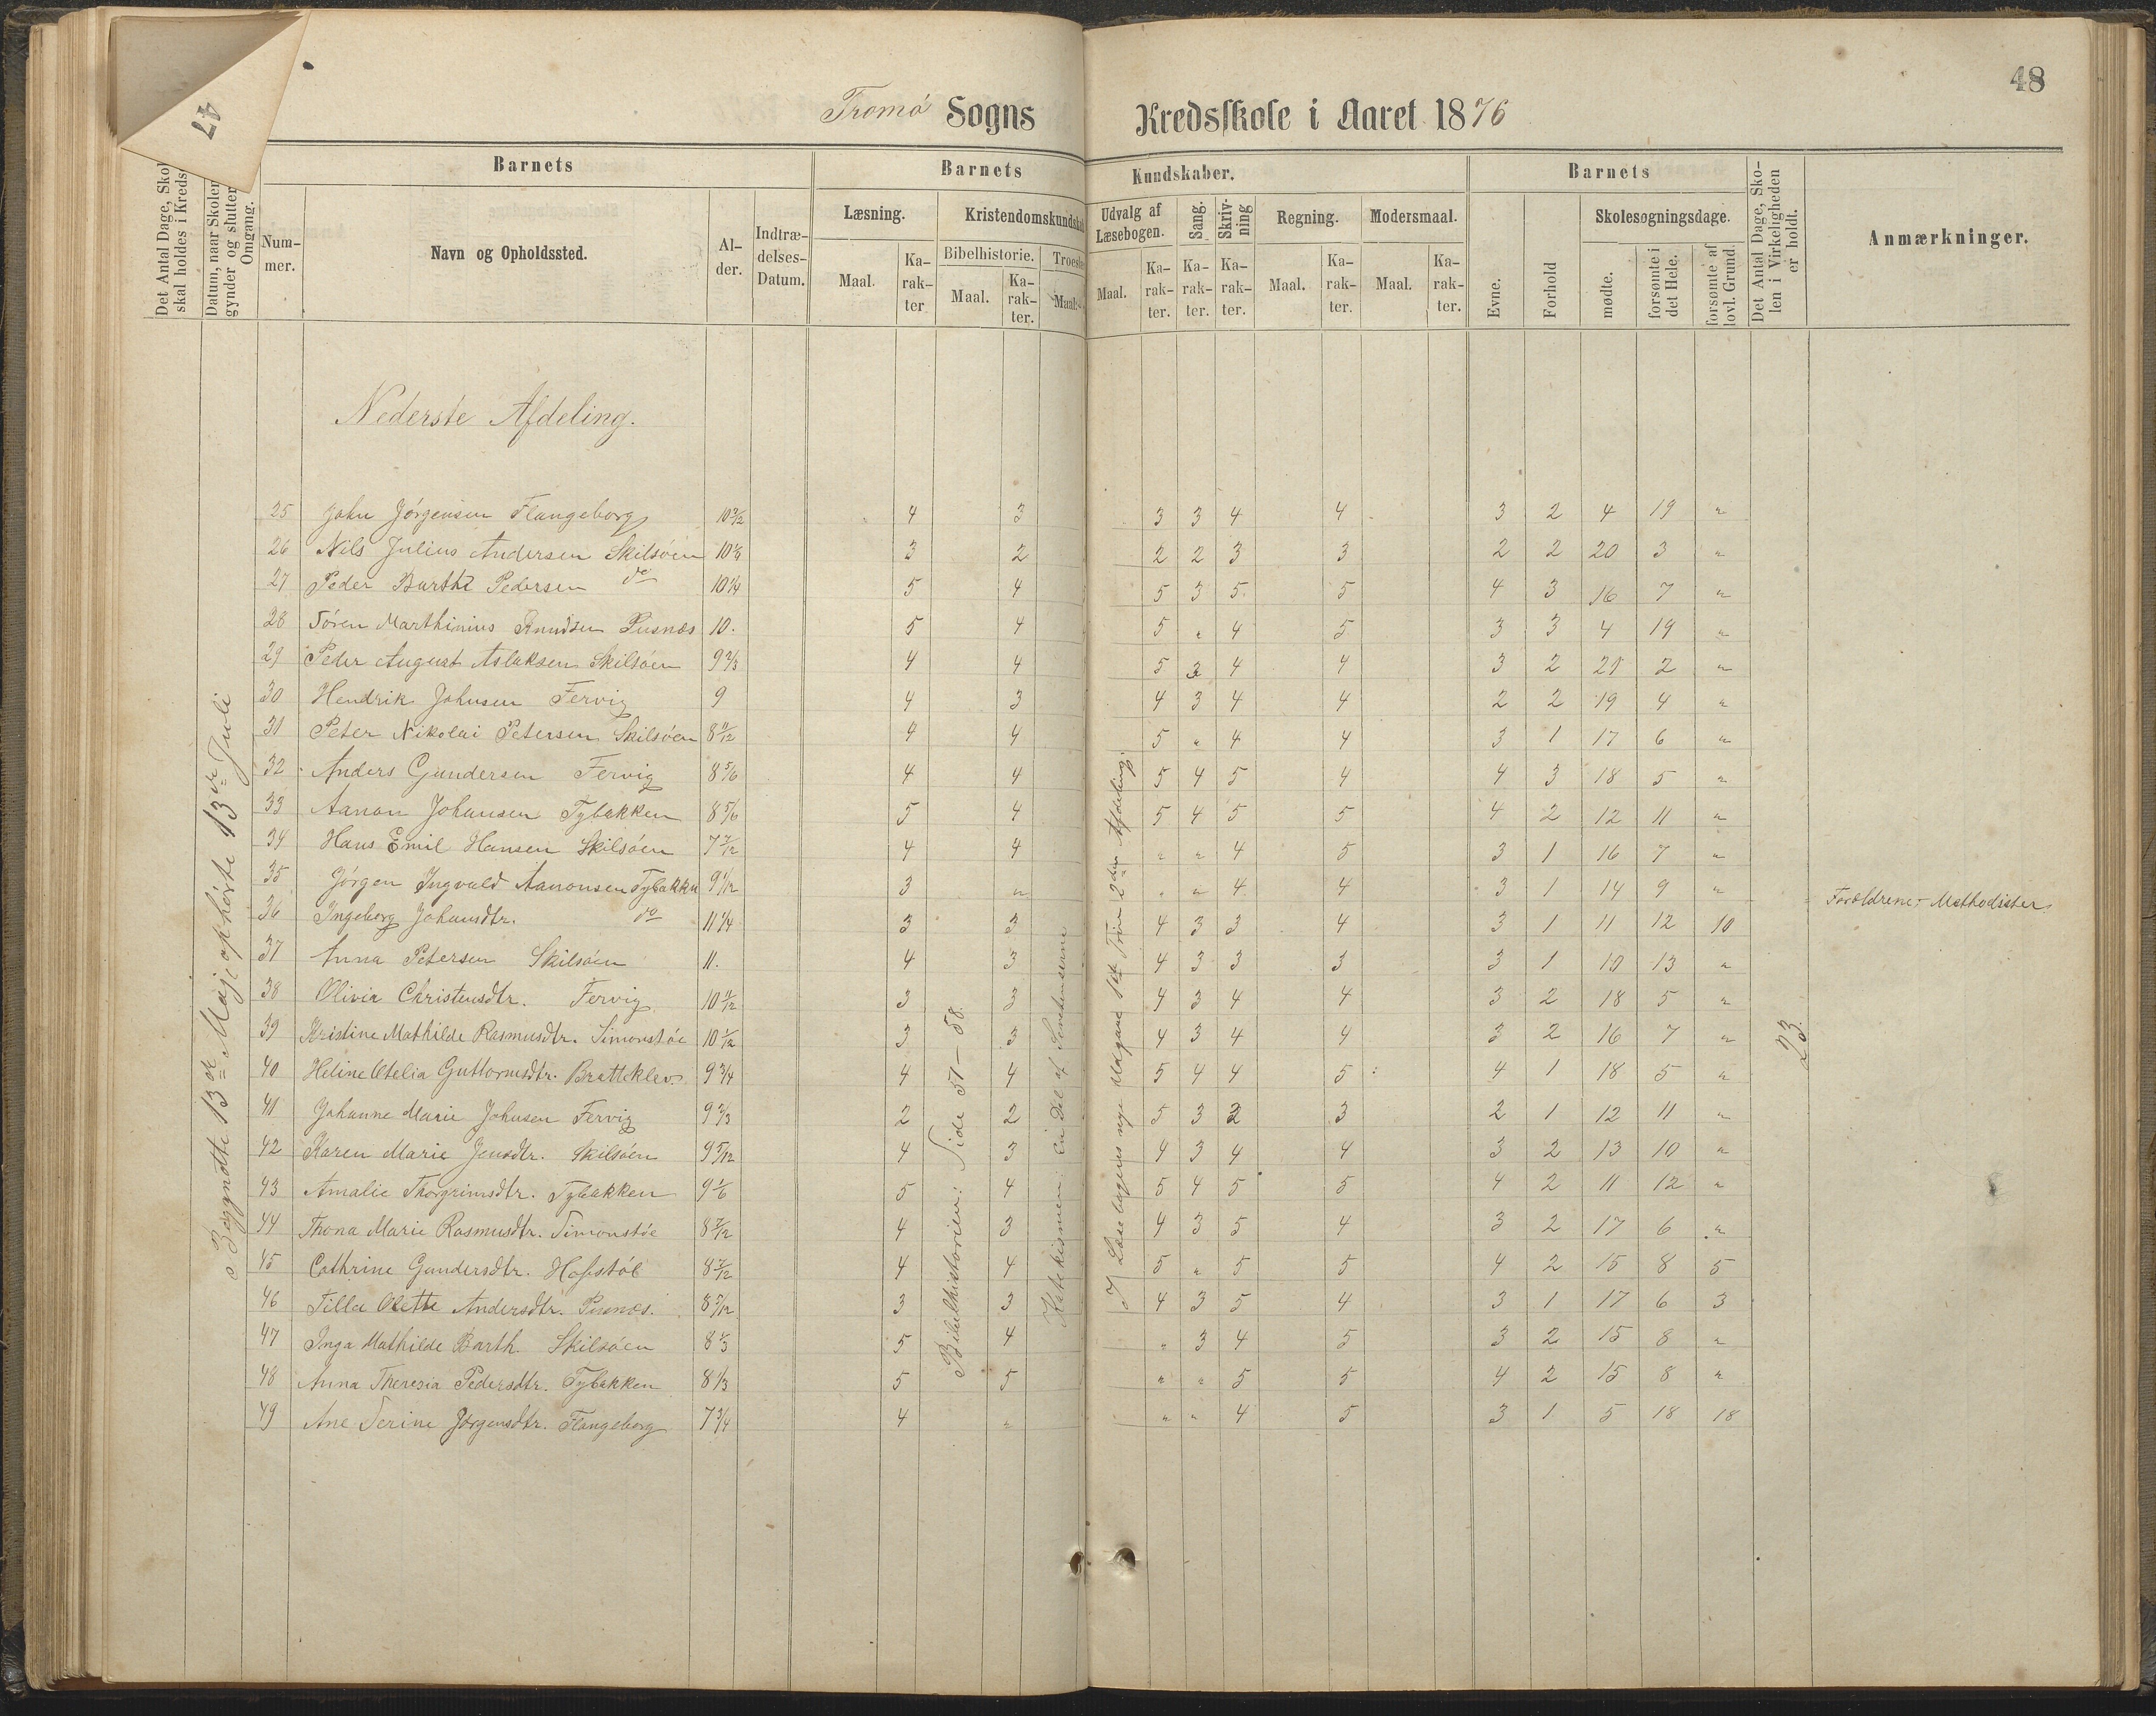 47
48
Tromø Sogns Kredsskole i Aaret 1876
Det Antal Dage, Skol
skal holdes i Kreds
Datum, naar Skolen
gynder og slutter
Omgang.
Barnets
Num-
mer.
Navn og Opholdssted.
Al-
der.
Indtræ-
delses-
Datum.
Barnets Kundskaber.
Læsning.
Maal.
Ka-
rak-
ter
Kristendomskundska
Bibelhistorie.
Maal.
Ka-
rak-
ter.
Troes
Maal.
Udvalg af
Læsebogen.
Maal.
Ka-
rak-
ter.
Sang.
Ka-
rak-
ter.
Skriv-
ning
Ka-
rak-
ter.
Regning.
Maal.
Ka-
rak-
ter.
Modersmaal.
Maal.
Ka-
rak-
ter.
Barnets
Evne.
Forhold
Skolesøgningsdage.
mødte.
forsømte i
det Hele.
forsømte af
lovl. Grund.
Det Antal Dage, Sko-
len i Virkeligheden
er holdt.
Anmærkninger.
Nederste Afdeling.
Begyndte 13de Maj, ophørte 13de Juli
25 John Jørgensen Flangeborg 10 3/12 4 3 3 3 4 4 3 2 4 19 "
26 Nils Julius Andersen Skilsøen 10 1/4 3 2 2 2 3 3 2 2 20 3 "
27 Peder Barth Pedersen do 10 1/4 5 4 5 3 5 5 4 3 16 7 "
28 Søren Marthinius Knudsen Pusnæs 10. 5 4 5 " 4 5 3 3 4 19 "
29 Peder August Aslaksen Skilsøen 9 2/3 4 4 5 3 4 4 3 2 21 2 "
30 Hendrik Johnsen Fervig 9 4 3 4 3 4 4 2 2 19 4 "
31 Peter Nikolai Petersen Skilsøen 8 11/12 4 4 5 " 4 4 3 1 17 6 "
32 Anders Gundersen Fervig 8 5/6 4 4 5 4 5 4 4 3 18 5 "
33 Aanon Johansen Tybakken 8 5/6 5 4 5 4 5 5 4 2 12 11 "
34 Hans Emil Hansen Skilsøen 7 7/12 4 4 " " 4 5 3 1 16 7 "
35 Jørgen Ingvald Aanonsen Tybakken 9 1/12 3 " " " 4 4 3 1 14 9 "
36 Ingeborg Johansdtr. do 11 1/4 3 3 4 3 3 4 3 1 11 12 10 Forældrene Methodister
37 Anna Petersen Skilsøen 11. 4 3 4 3 3 3 3 1 10 13 "
38 Olivia Christensdtr. Fervig 10 11/12 3 3 4 3 4 4 3 2 18 5 "
39 Kristine Mathilde Rasmusdtr. Simonstøe 10 1/12 3 3 4 3 4 4 3 2 16 7 "
40 Heline Otelia Guttormsdtr. Bratteklev 9 3/4 4 4 5 4 4 5 4 1 18 5 "
41 Johanne Marie Johnsen Fervig 9 2/3 2 2 5 3 2 3 2 1 12 11 "
42 Karen Marie Jensdtr. Skilsøen 9 5/12 4 3 4 3 4 4 3 2 13 10 "
43 Amalie Thorgrimsdtr. Tybakken 9 1/6 5 4 5 4 5 5 4 2 11 12 "
44 Thona Marie Rasmusdtr. Simonstøe 8 7/12 4 3 4 3 5 4 3 2 17 6 "
45 Cathrine Gundersdtr. Hofstøl 8 7/12 4 4 5 " 5 5 4 2 15 8 5
46 Tilla Olette Andersdtr. Pusnæs. 8 5/12 3 3 4 3 5 4 3 1 17 6 3
47 Inga Mathilde Barth. Skilsøen 8 1/3 5 4 " 3 4 5 3 2 15 8 "
48 Anna Theresia Pedersdtr. Tybakken 8 1/3 5 5 " " 5 5 4 2 15 8 "
49 Ane Serine Jørgensdtr. Flangeborg 7 3/4 4 " " " 4 5 3 1 5 18 18
Bibelhistorien: Side 51-58.
Katekismen: En Del af Sentenserne
I Læsebogens nye Udgave 1ste Trin 2den Afdeling.
23.